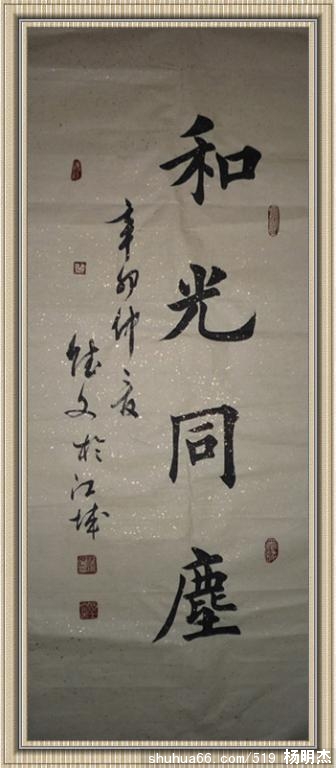 和光同塵
辛卯仲夏
文於江城
shuhua66.com/519 杨明杰